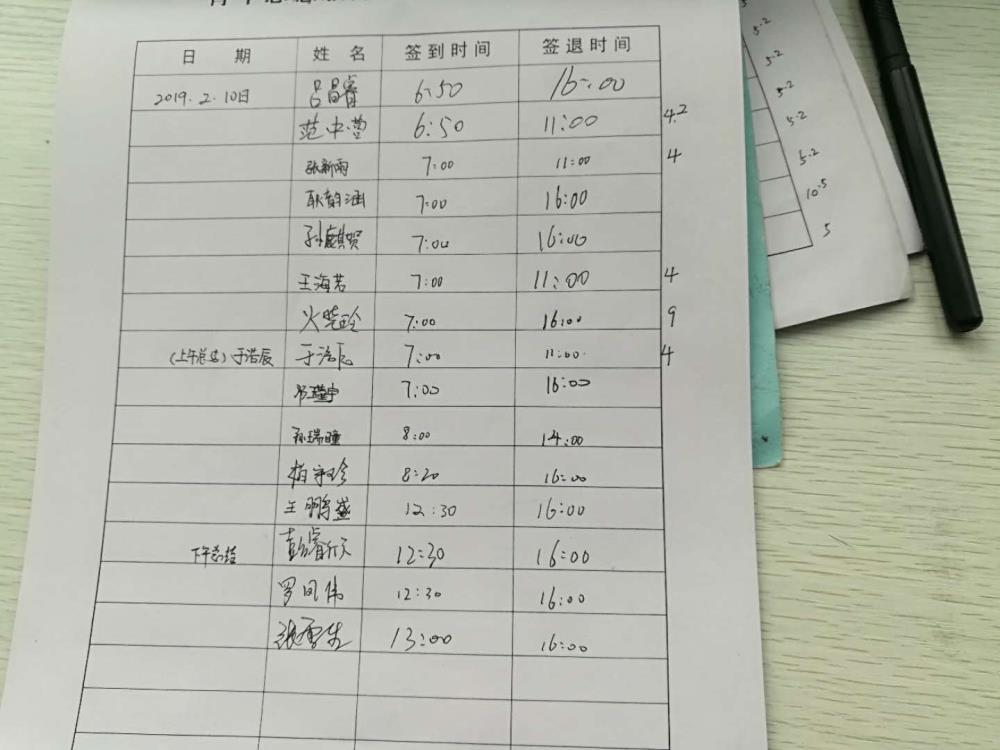 日 期 姓 名 签到时间 签退时间
2019.2.10日 吕昌睿 6:50 16:00
范中萱 6:50 11:00 4.2
张新雨 7:00 11:00 4
耿韵涵 7:00 16:00
孙麒贺 7:00 16:00
王海若 7:00 11:00 4
火莹玲 7:00 16:00 9
(上午总结)于浩辰 于浩辰 7:00 11:00 4
7:00 16:00
孙瑞瞳 8:00 14:00
8:20 16:00
王鹏盛 12:30 16:00
下午总结 彭睿忻 12:30 16:00
罗凤伟 12:30 16:00
13:00 16:00
5.2
5.2
5.2
5.2
10.5
5